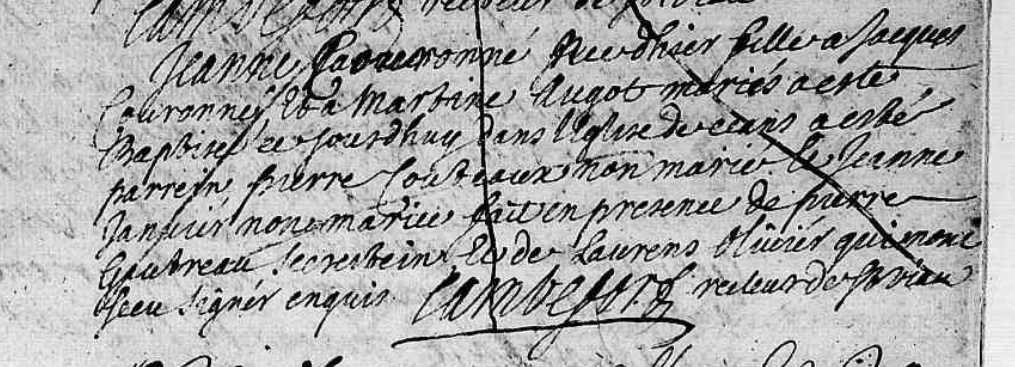 Jeanne Couronné née dhier fille a Jacques
Couronney Et a Martine Augot mariés a esté
Baptisée ce jourdhuy dans l'Eglise de ceans a esté
parrein pierre Couteaux non marie Et Jeanne
Janvier non mariée fait en presence de pierre
Goubreau Secrestein Et de Laurens Olivier qui nont
sceu signer enquis recteur de